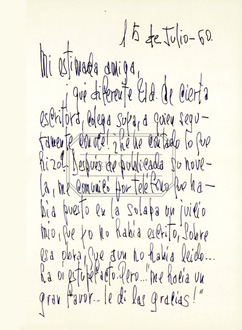 15 de Julio-60.
Mi estimada amiga,
¡qué diferente Ud. de cierta
escritora, colega suya, a quien segu-
ramente conoce! ¿he contado lo que
hizo? Después de publicada su nove-
la, me comunicó por teléfono que ha-
bía puesto en la solapa un juicio
mío, que yo no había escrito, sobre
esa obra, que aun no había leído...
"me hacía un
gran favor... le di las gracias!"